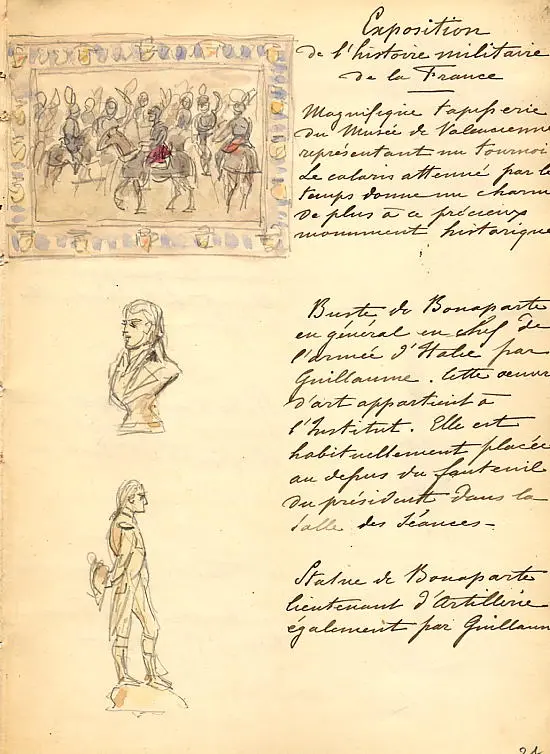 Exposition
de l'histoire militaire
de la France
Magnifique tapisserie
du Musée de Valencienn
représentant un tournoi
Le coloris attenué par le
temps donne un charm
de plus à ce précieux
monument historique
Buste de Bonaparte
en général en chef de
l'armée d'Italie par
Guillaume. Cette oeuvr
d'art appartient à
l'Institut. Elle est
habituellement placée
au dessus du fauteuil
du président dans la
salle des séances -
Statue de Bonaparte
lieutenant d'Artillerie
également par Guillaum